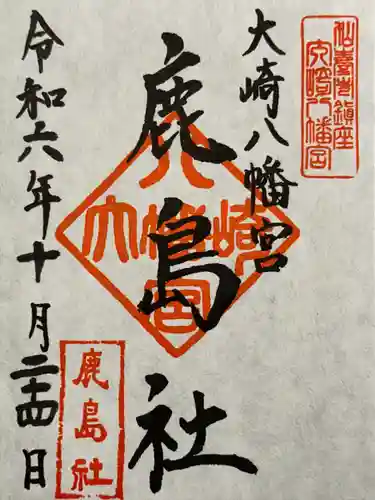 仙臺巷鎮座
大崎八幡宮
大崎八幡宮
鹿島社
大崎八幡宮
令和六年十月二十四日
鹿島社